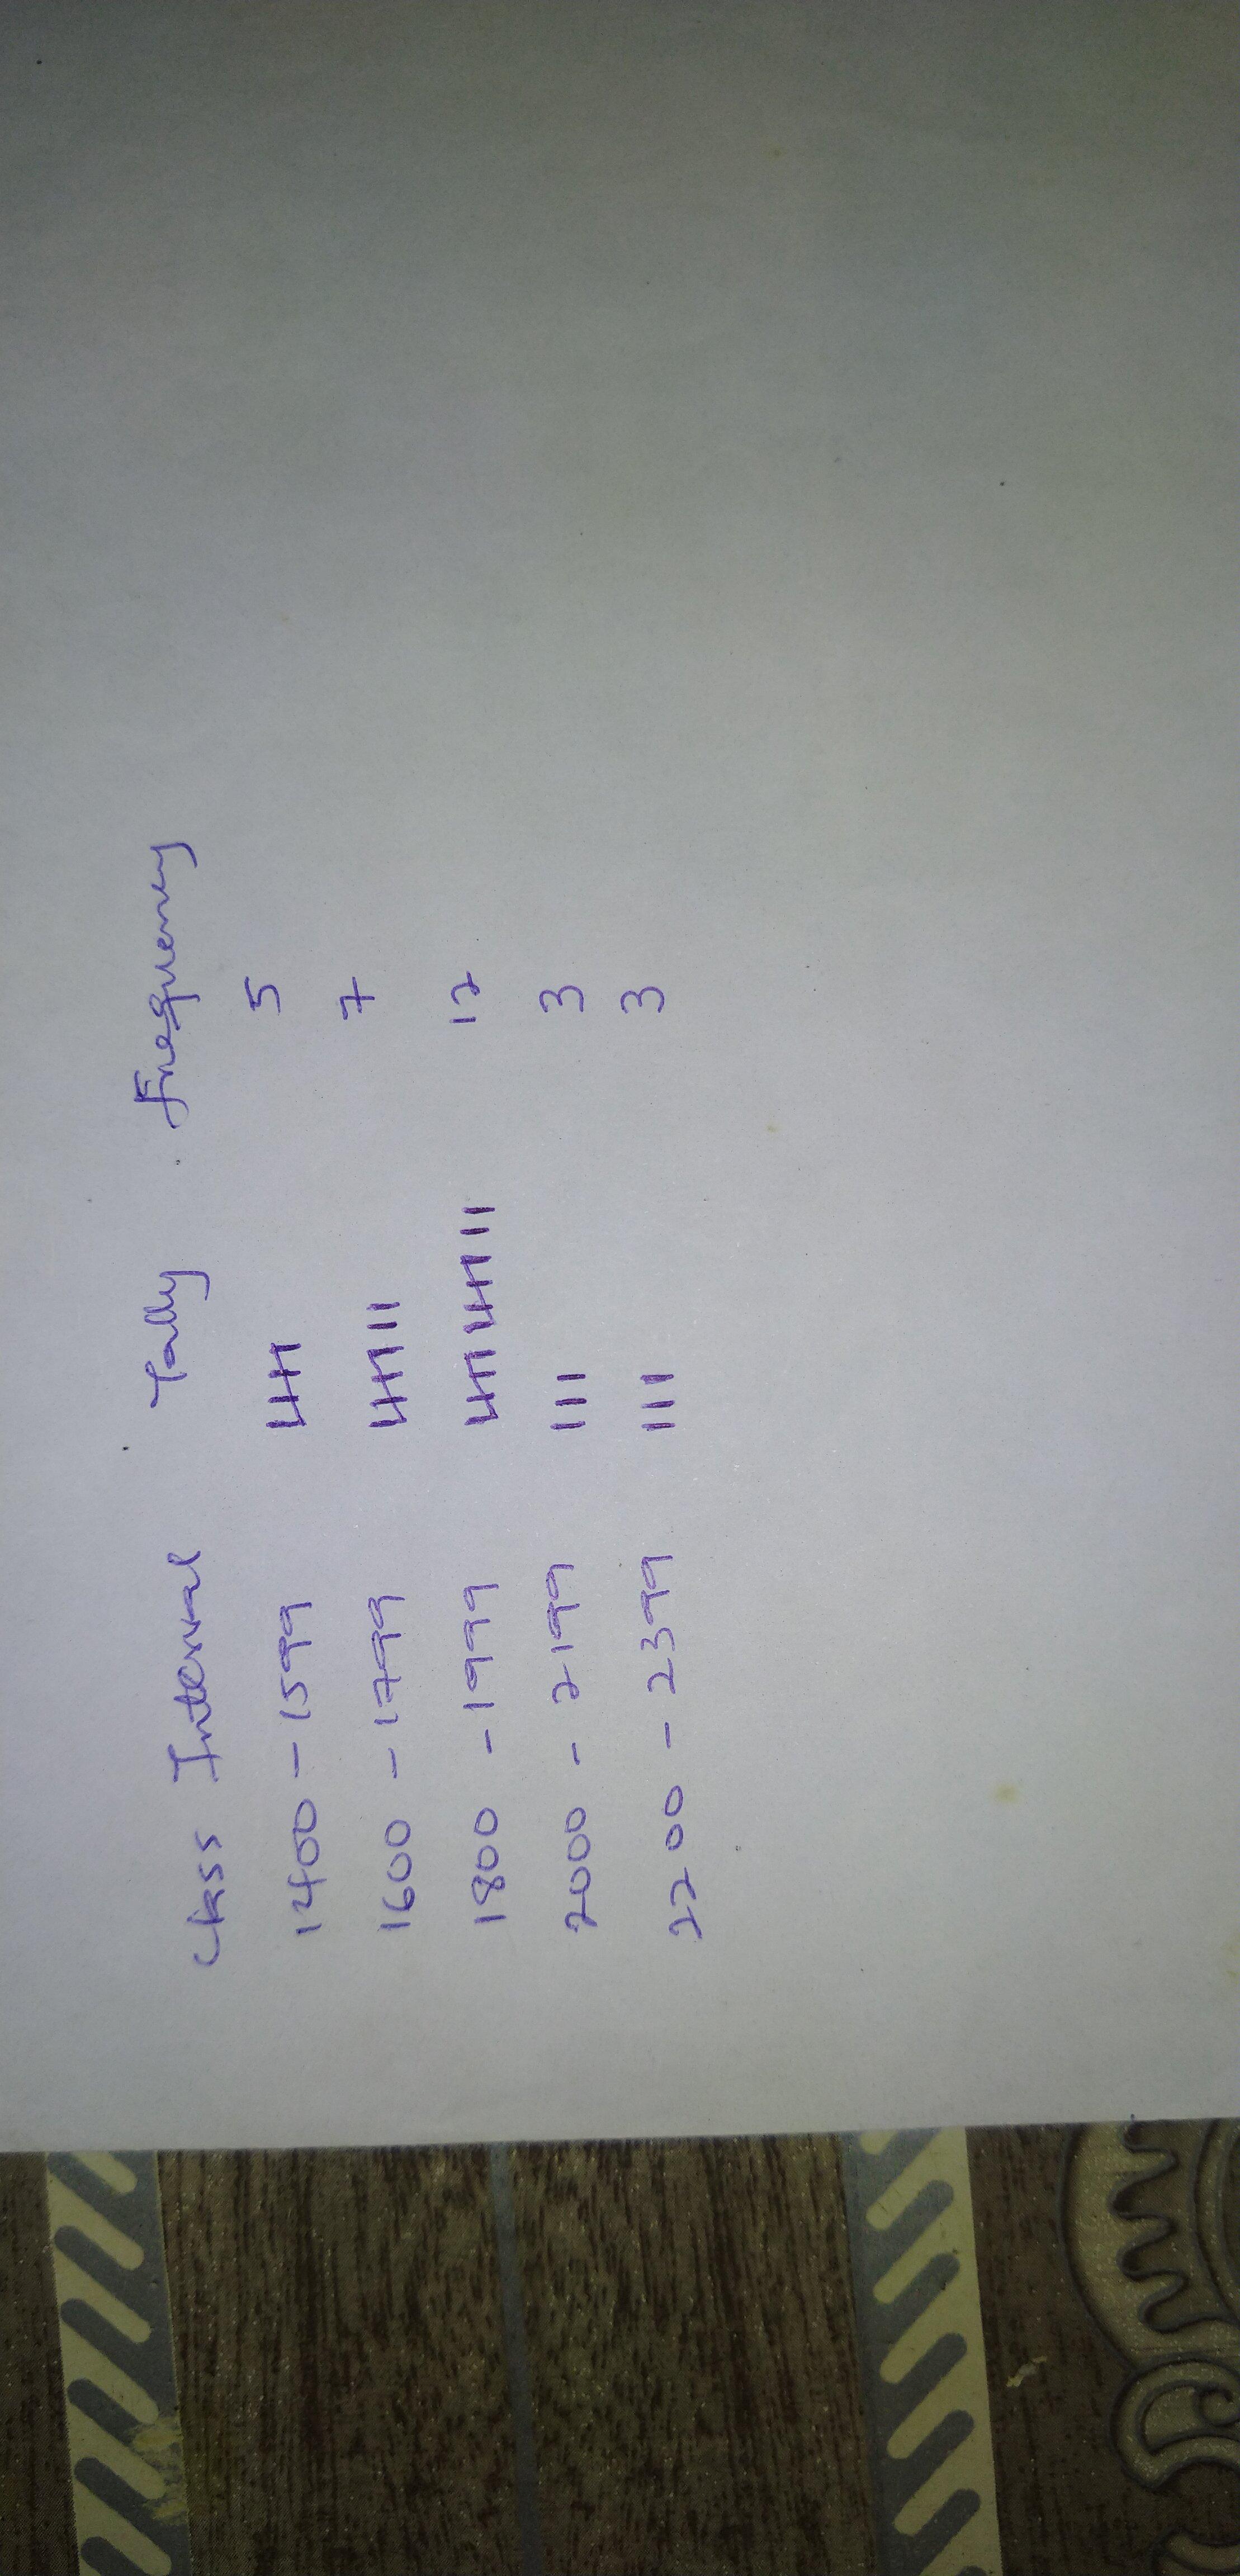 Class Interval Tally Frequency
1400 - 1599 卌 5
1600 - 1799 卌 || 7
1800 - 1999 卌 卌 || 12
2000 - 2199 ||| 3
2200 - 2399 ||| 3